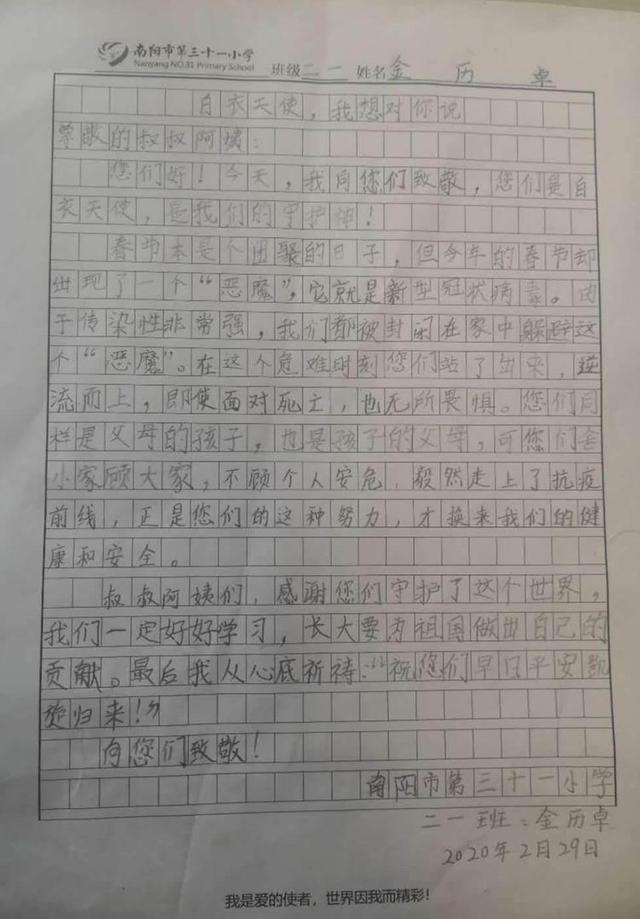 南阳市第三十一小学
Nanyang NO.31 Primary School
班级二一 姓名金历卓
白衣天使，我想对你说
尊敬的叔叔阿姨：
您们好！今天，我向您们致敬，您们是白
衣天使，是我们的守护神！
春节本是个团聚的日子，但今年的春节却
出现了一个“恶魔”，它就是新型冠状病毒。由
于传染性非常强，我们都被封闭在家中躲避这
个“恶魔”。在这个危难时刻您们站了出来，逆
流而上，即使面对死亡，也无所畏惧。您们同
样是父母的孩子，也是孩子的父母，可您们舍
小家顾大家，不顾个人安危，毅然走上了抗疫
前线，正是您们的这种努力，才换来我们的健
康和安全。
叔叔阿姨们，感谢您们守护了这个世界，
我们一定好好学习，长大要为祖国做出自己的
贡献。最后我从心底祈祷：“祝您们早日平安凯
旋归来！”
向您们致敬！
南阳市第三十一小学
二一班：金历卓
2020年2月29日
我是爱的使者，世界因我而精彩！